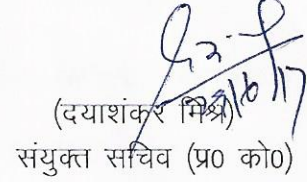 (दयाशंकर मिश्र)
संयुक्त सचिव (प्र0 को0)